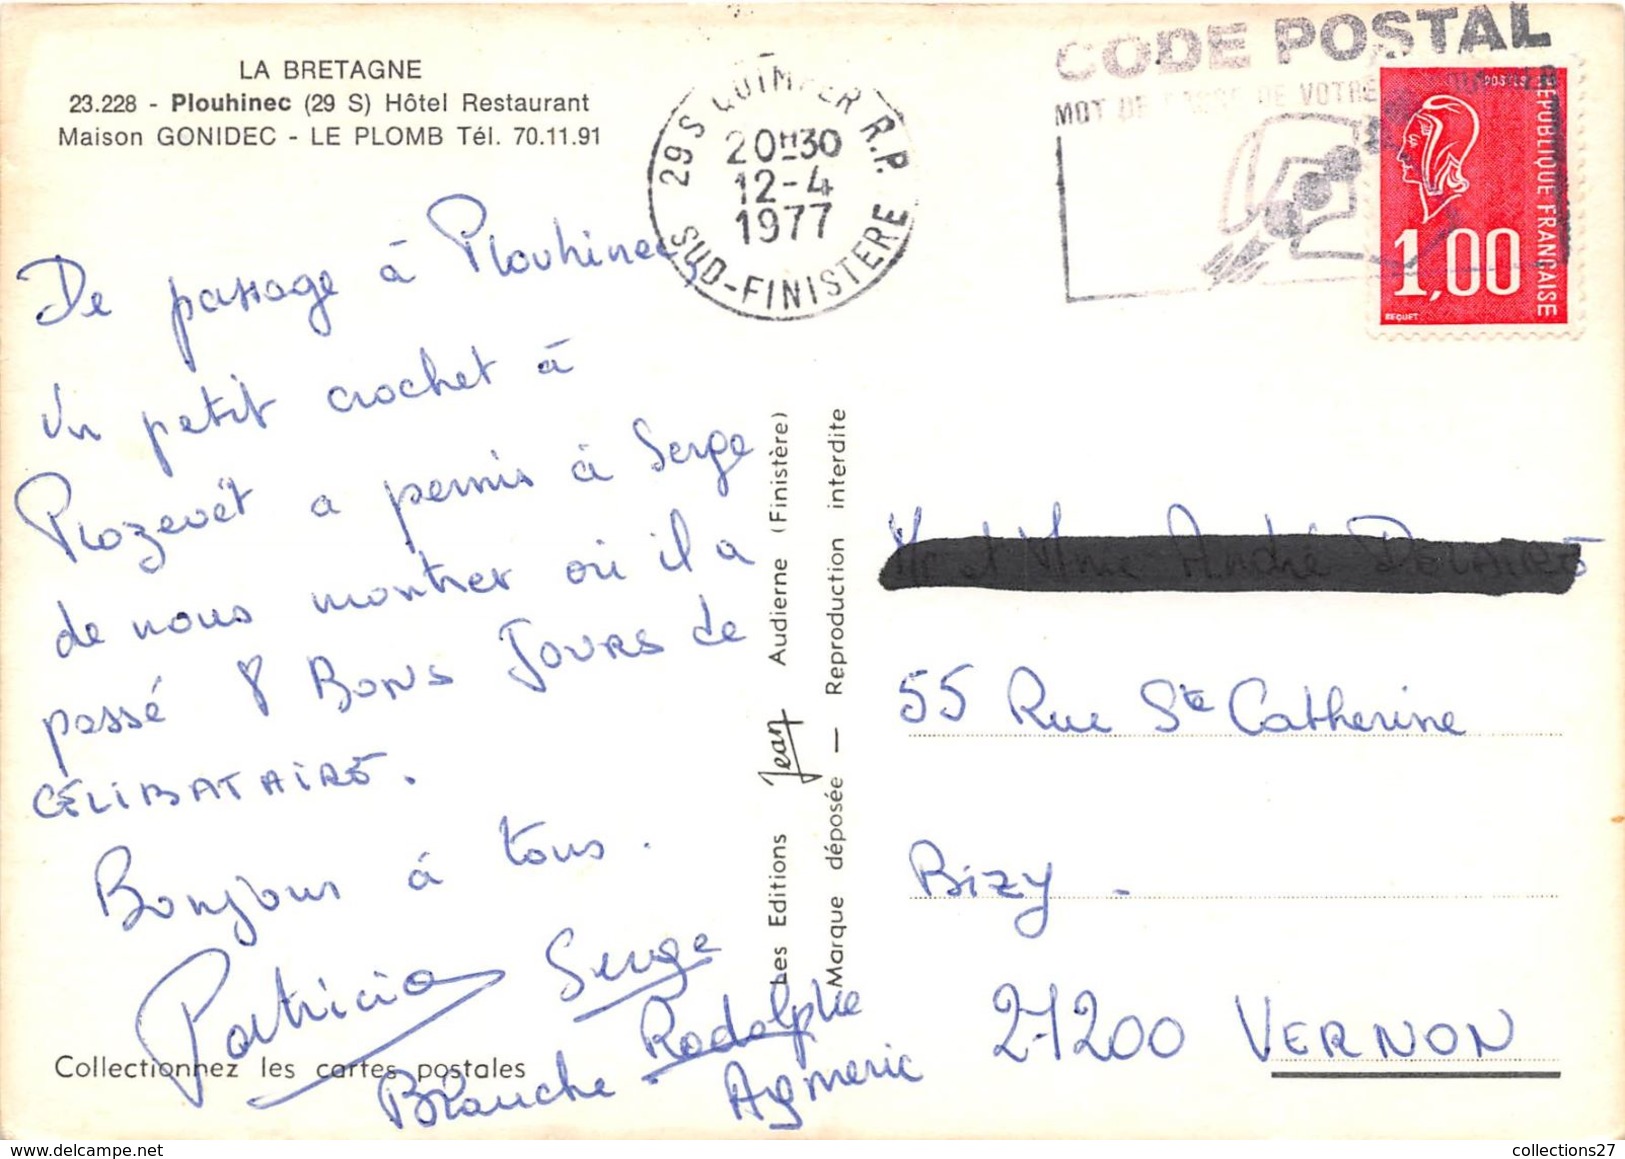 LA BRETAGNE
23.228 - Plouhinec (29 S) Hôtel Restaurant
Maison GONIDEC - LE PLOMB Tél. 70.11.91
29 S QUIMPER R.P.
20H30
12-4
1977
SUD-FINISTERE
CODE POSTAL
MOT DE PASSE DE VOTRE
POSTES
RÉPUBLIQUE FRANÇAISE
1,00
BEQUET
De passage à Plouhinec,
Un petit crochet à
Plozevét a permis à Serge
de nous montrer où il a
passé 8 BONS JOURS de
CÉLIBATAIRE.
Bonjour à tous.
Patricia Serge
Blanche Rodolphe
Aymeric
Collectionnez les cartes postales
Les Editions Jean Audierne (Finistère)
Marque déposée — Reproduction interdite
Mr et Mme André
55 Rue Ste Catherine
Bizy -
27200 VERNON
collections27